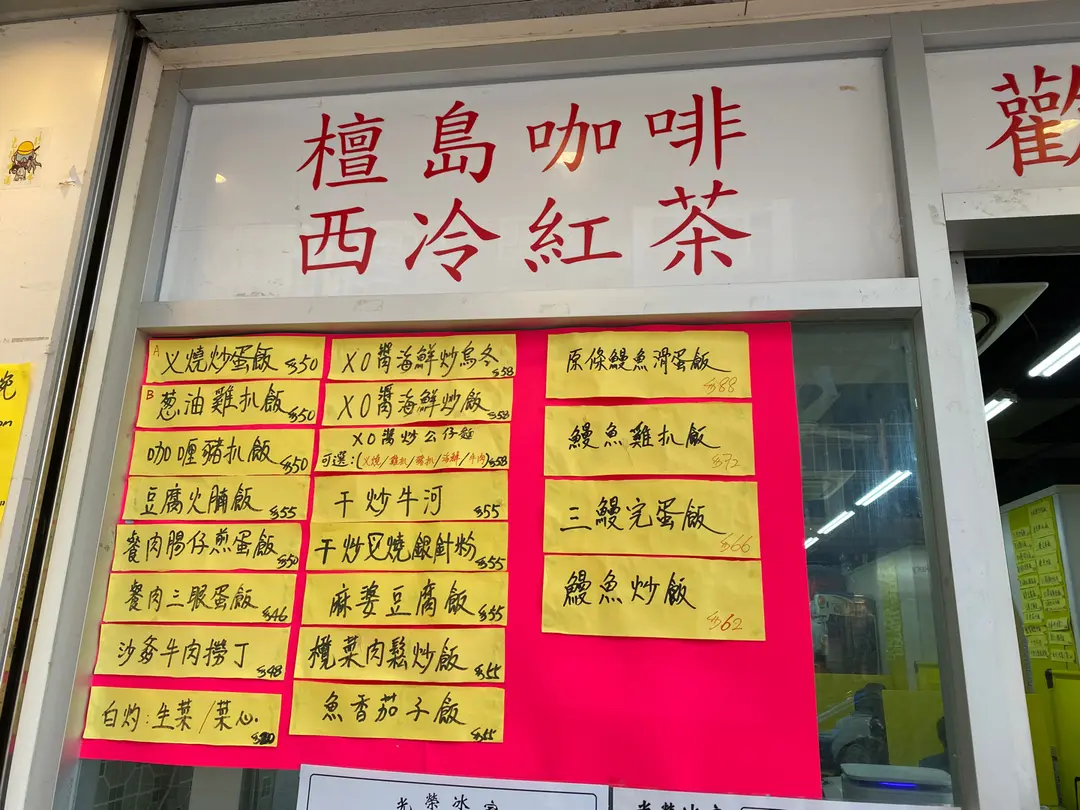 檀島咖啡
西冷紅茶
歡
A 义燒炒蛋飯 $50
B 葱油雞扒飯 $50
咖喱豬扒飯 $50
豆腐火腩飯 $55
餐肉腸仔煎蛋飯 $50
餐肉三眼蛋飯 $46
沙爹牛肉撈丁 $48
白灼:生菜/菜心 $20
XO醬海鮮炒烏冬 $58
XO醬海鮮炒飯 $58
XO醬炒公仔麵
可選:(义燒/雞扒/豬扒/海鮮/牛肉) $58
干炒牛河 $55
干炒叉燒銀針粉 $55
麻婆豆腐飯 $55
欖菜肉鬆炒飯 $55
魚香茄子飯 $55
原條鰻魚滑蛋飯 $88
鰻魚雞扒飯 $72
三鰻完蛋飯 $66
鰻魚炒飯 $62
光榮冰室
光榮冰室